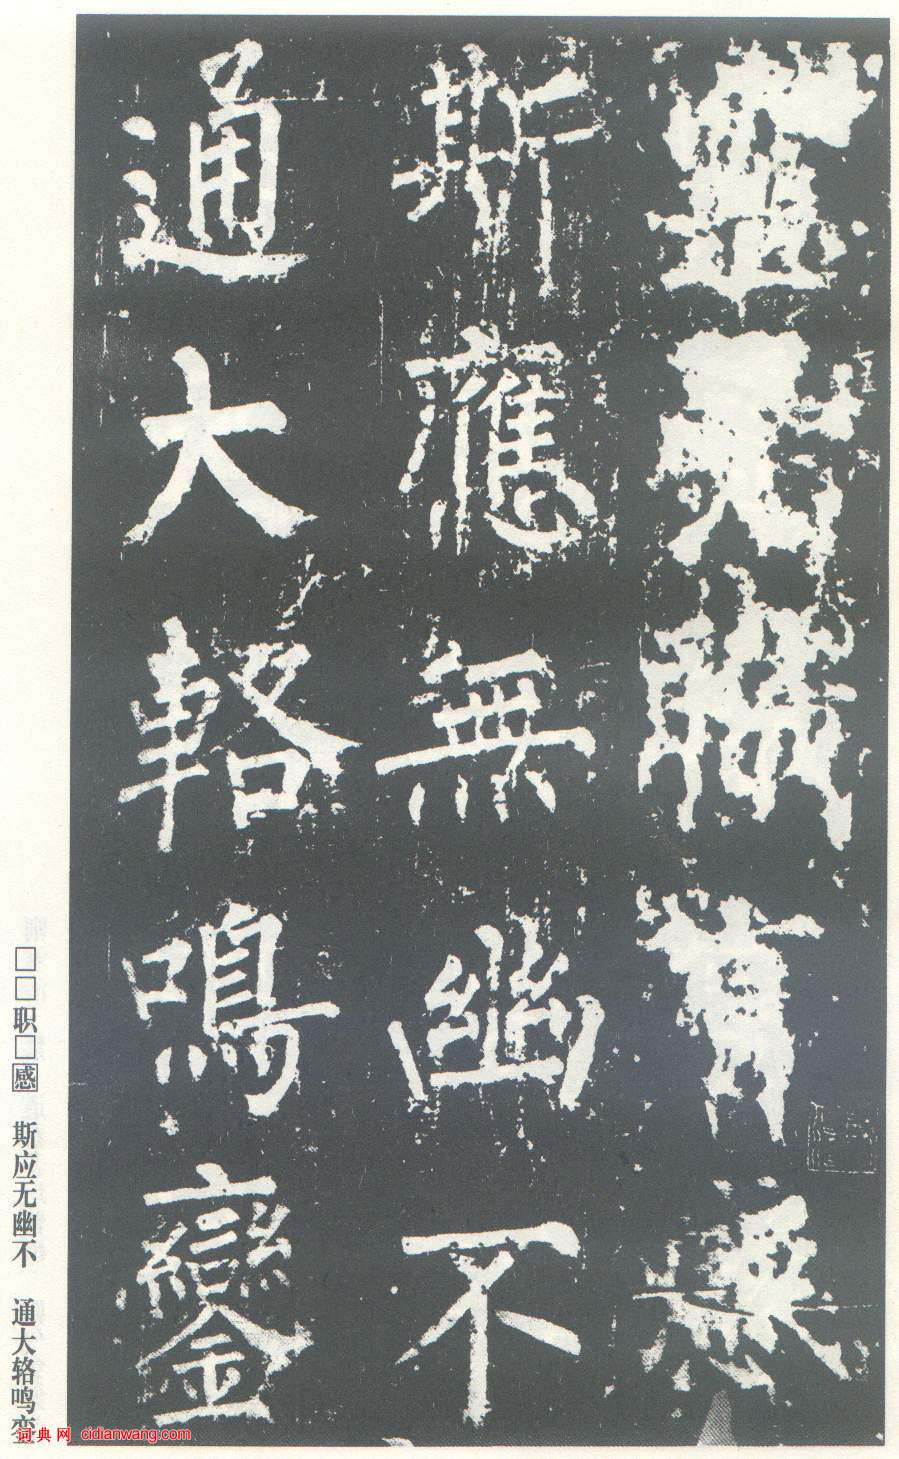 職
斯應無幽不
通大輅鳴鑾
□□职□感 斯应无幽不 通大辂鸣銮
词典网 cidianwang.com